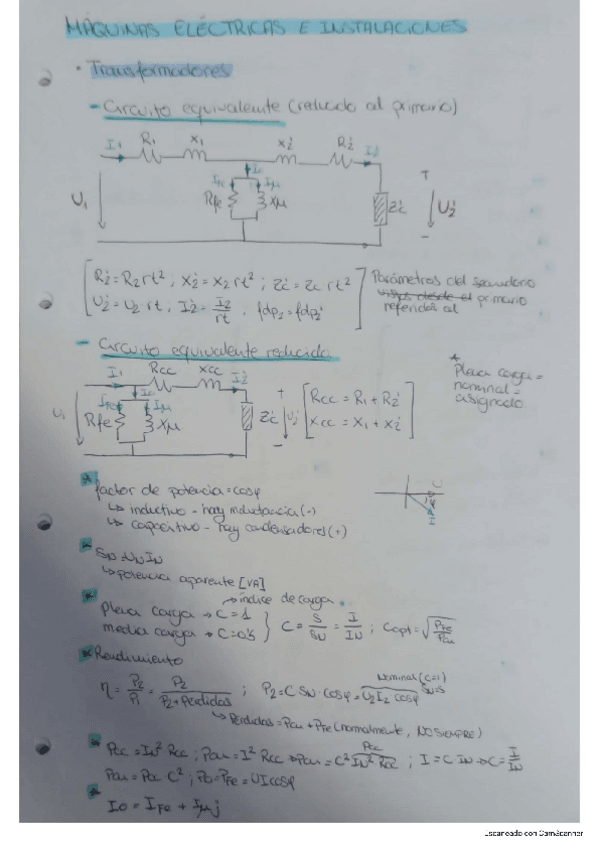 MÁQUINAS ELÉCTRICAS E INSTALACIONES
• Transformadores
- Circuito equivalente (reducido al primario)
I1 R1 X1 X2' R2' I2'
Io
Ife Iμ
U1 Rfe Xμ Zc' + U2' -
R2' = R2 rt² ; X2' = X2 rt² ; Zc' = Zc rt²
U2' = U2 rt ; I2' = I2/rt ; fdp2 = fdp2'
Parámetros del secundario
vistos desde el primario
referidos al
- Circuito equivalente reducido
I1 Rcc Xcc I2'
Io
Ife Iμ
U1 Rfe Xμ Zc' + U2' -
Rcc = R1 + R2'
Xcc = X1 + X2'
* Plena carga =
nominal =
asignado
* factor de potencia = cosφ
↳ inductivo - hay inductancia (-)
↳ capacitivo - hay condensadores (+)
U
φ
I
* SN = UN IN
↳ potencia aparente [VA]
→ índice de carga
* Plena carga → C = 1
media carga → C = 0'5
C = S/SN = I/IN ; Copt = √(PFe/Pcu)
* Rendimiento
η = P2/P1 = P2/(P2 + Pérdidas) ; P2 = C SN · cosφ = U2 I2 cosφ
Nominal (C=1)
SN=S
↳ Pérdidas = Pcu + PFe (normalmente, NO SIEMPRE)
* Pcc = IN² Rcc ; Pcu = I² Rcc → Pcu = C² IN² Rcc ; I = C IN → C = I/IN
Pcc
Pcu = Pcc C² ; Po = PFe = UI cosφ
* Io = IFe + Iμ j
Escaneado con CamScanner